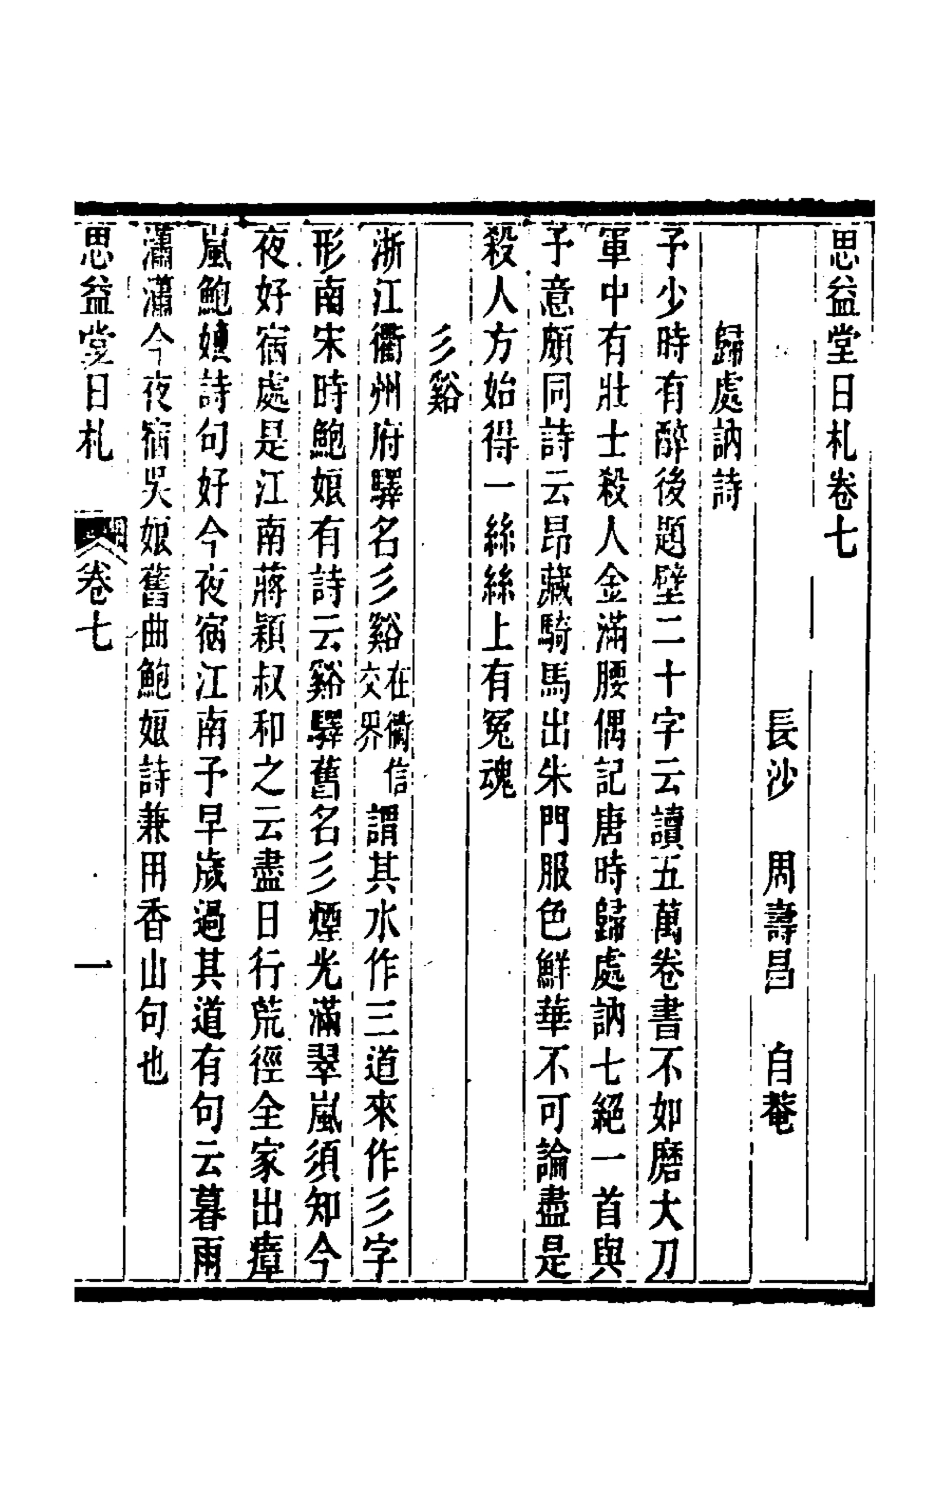 思益堂日札卷七
長沙　周壽昌　自菴
歸處訥詩
予少時有醉後題壁二十字云讀五萬卷書不如磨大刀
軍中有壯士殺人金滿腰偶記唐時歸處訥七絕一首與
予意頗同詩云昂藏騎馬出朱門服色鮮華不可論盡是
殺人方始得一絲絲上有冤魂
彡谿
浙江衢州府驛名彡谿在衢信交界謂其水作三道來作彡字
形南宋時鮑娘有詩云谿驛舊名彡煙光滿翠嵐須知今
夜好宿處是江南蔣穎叔和之云盡日行荒徑全家出瘴
嵐鮑孃詩句好今夜宿江南予早歲過其道有句云暮雨
瀟瀟今夜宿吳娘舊曲鮑娘詩兼用香山句也
思益堂日札　卷七　一